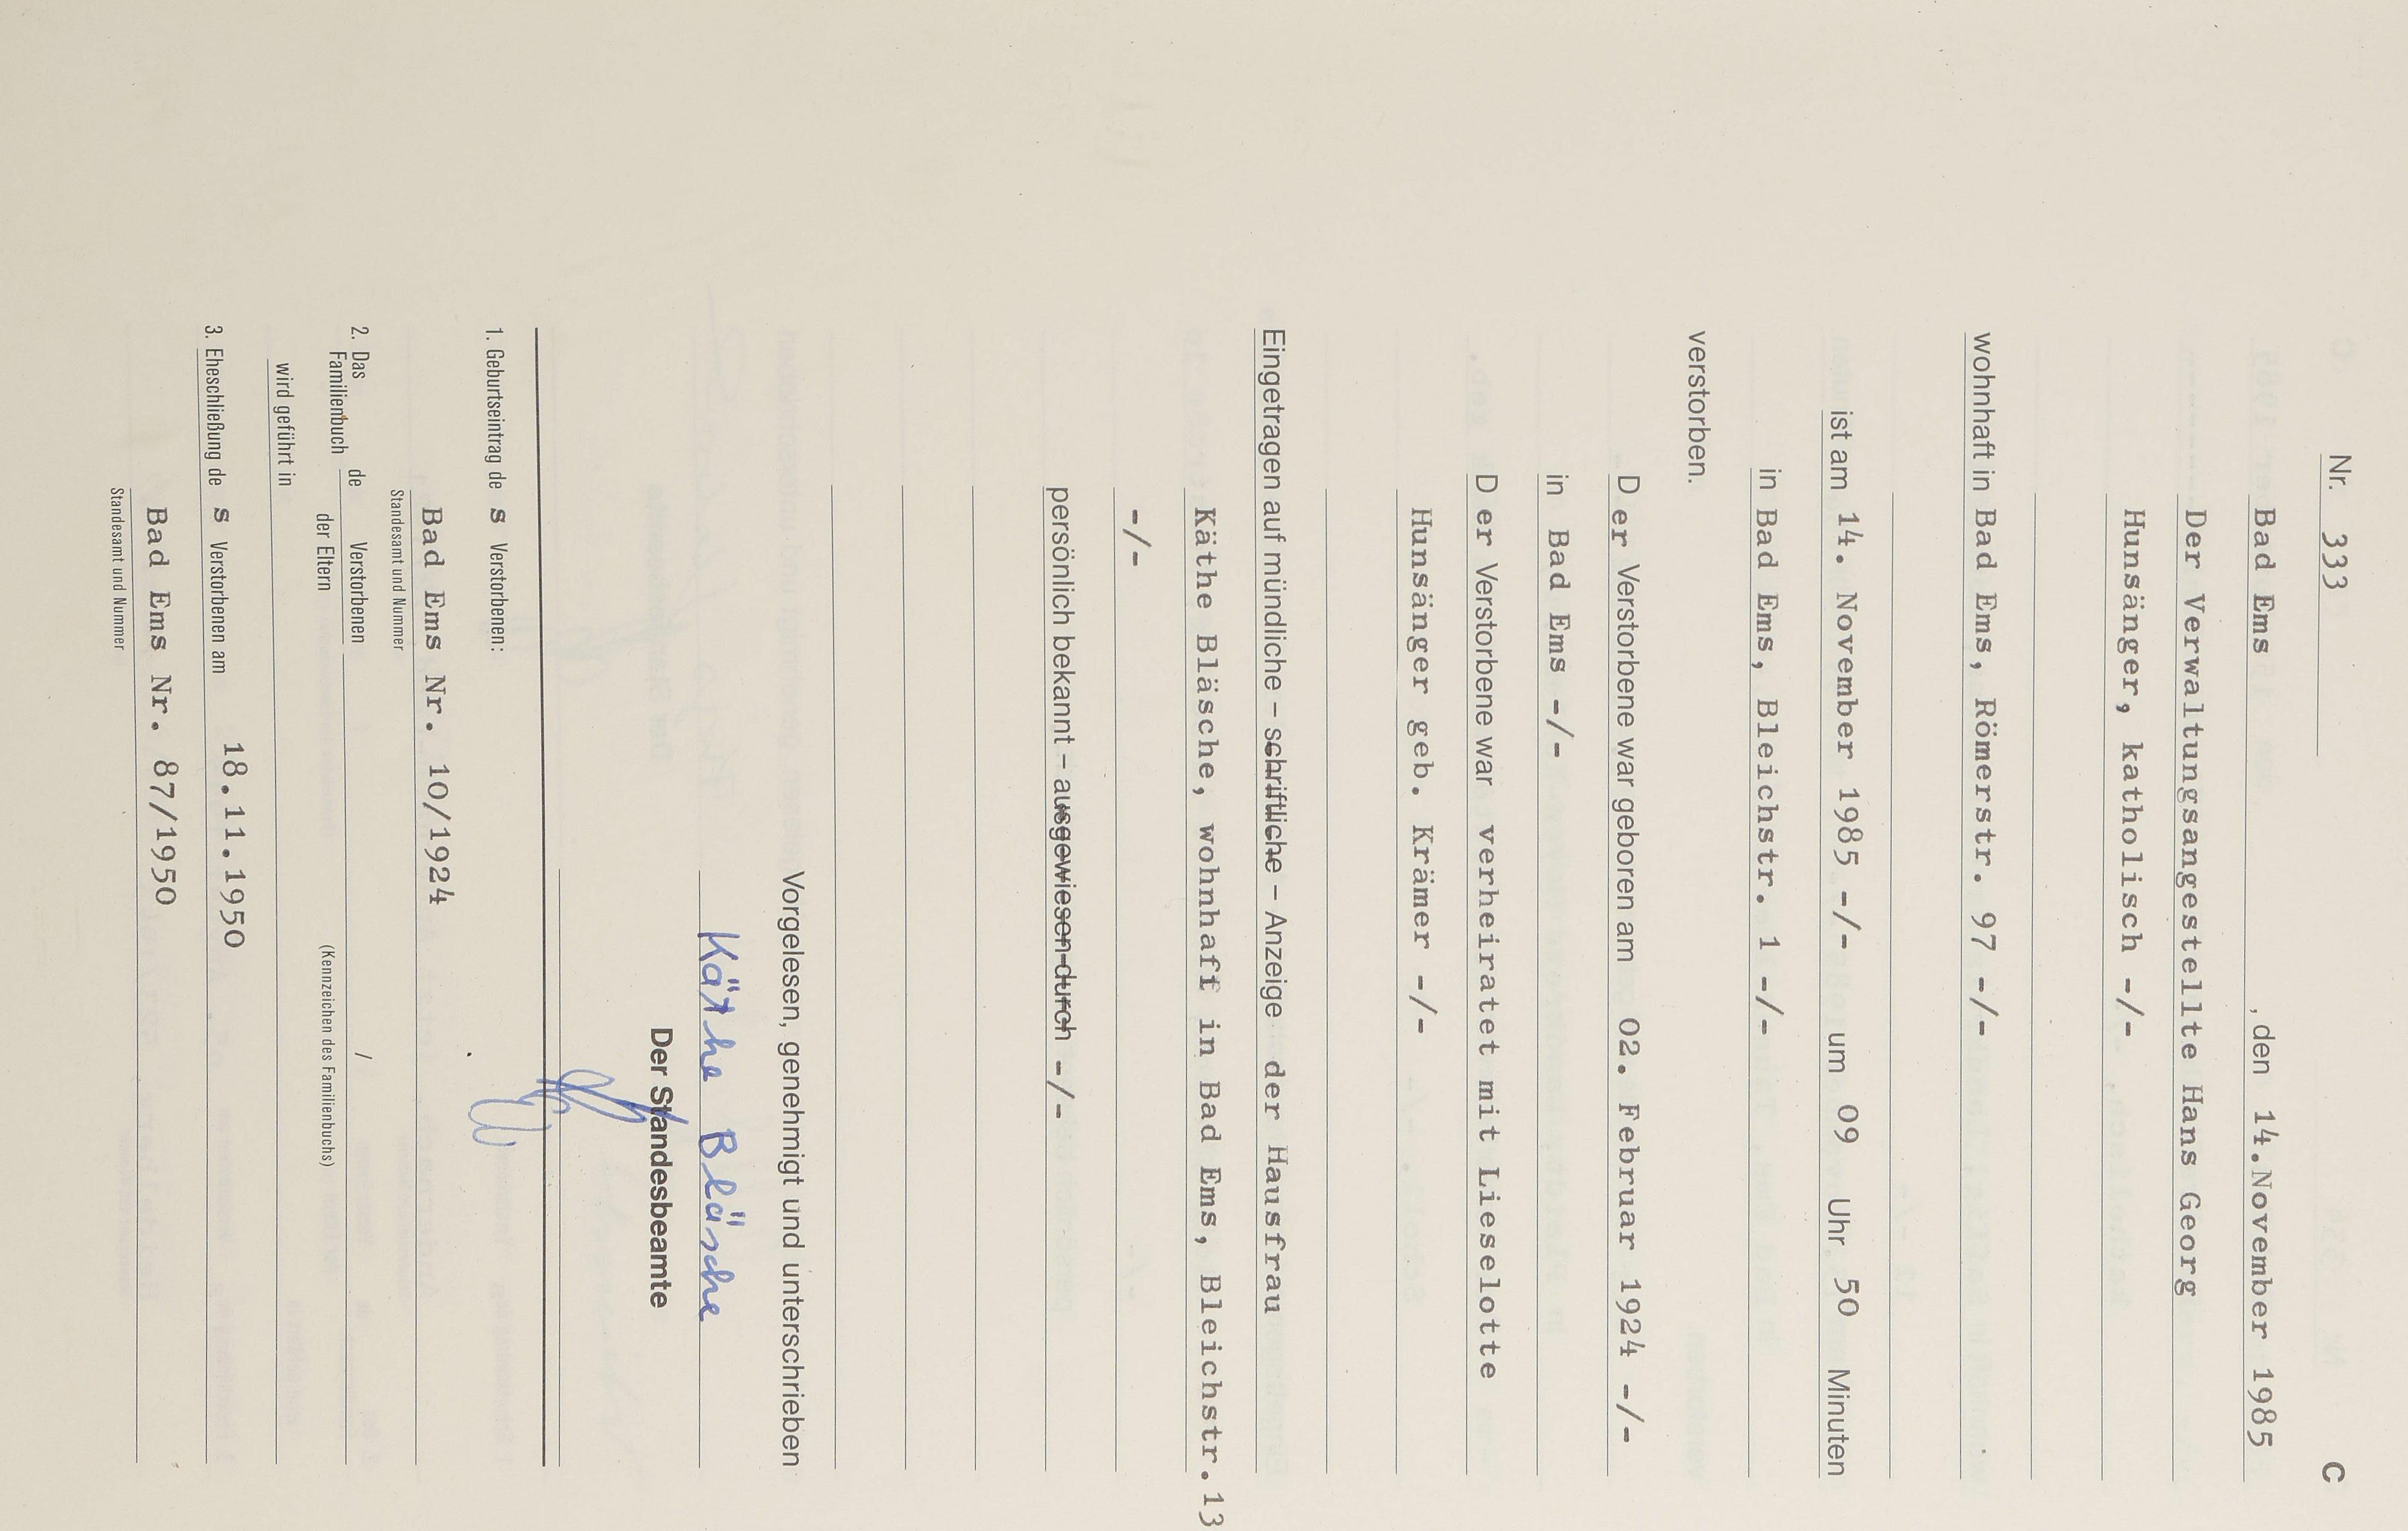 Nr. 333 C
Bad Ems , den 14.November 1985
Der Verwaltungsangestellte Hans Georg
Hunsänger, katholisch -/-
wohnhaft in Bad Ems, Römerstr. 97 -/-
ist am 14. November 1985 -/- um 09 Uhr 50 Minuten
in Bad Ems, Bleichstr. 1 -/-
verstorben.
D er Verstorbene war geboren am 02. Februar 1924 -/-
in Bad Ems -/-
D er Verstorbene war verheiratet mit Lieselotte
Hunsänger geb. Krämer -/-
Eingetragen auf mündliche – schriftliche – Anzeige der Hausfrau
Käthe Bläsche, wohnhaft in Bad Ems, Bleichstr.13
-/-
persönlich bekannt – ausgewiesen durch -/-
Vorgelesen, genehmigt und unterschrieben
Käthe Bläsche
Der Standesbeamte
1. Geburtseintrag de s Verstorbenen:
Bad Ems Nr. 10/1924
Standesamt und Nummer
2. Das de Verstorbenen /
Familienbuch der Eltern (Kennzeichen des Familienbuchs)
wird geführt in
3. Eheschließung de s Verstorbenen am 18.11.1950
Bad Ems Nr. 87/1950
Standesamt und Nummer